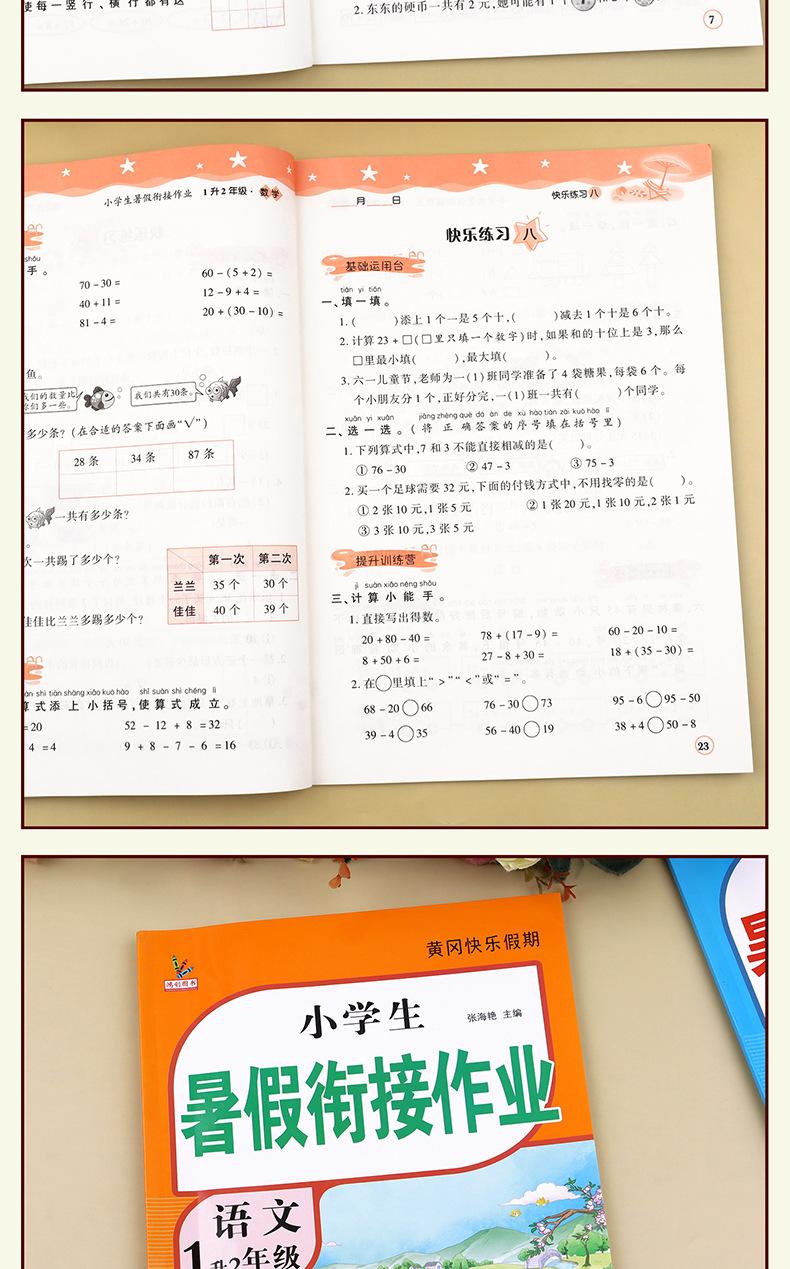 使每一竖行、横行都有这
2. 东东的硬币一共有2元,她可能有1个
7
小学生暑假衔接作业 1升2年级·数学
手。
70-30= 60-(5+2)=
40+11= 12-9+4=
81-4= 20+(30-10)=
鱼。
我们的数量比
你们多一些。
我们共有30条。
多少条?(在合适的答案下面画“√”)
28条 34条 87条
一共有多少条?
次一共踢了多少个?
第一次 第二次
兰兰 35个 30个
佳佳 40个 39个
佳佳比兰兰多踢多少个?
suàn shì tiān shàng xiǎo kuò hào shǐ suàn shì chéng lì
算式添上小括号,使算式成立。
=20 52-12+8=32
4=4 9+8-7-6=16
月 日 快乐练习八
快乐练习 八
基础运用台
tián yi tián
一、填一填。
1.( )添上1个一是5个十,( )减去1个十是6个十。
2.计算23+□(□里只填一个数字)时,如果和的十位上是3,那么
□里最小填( ),最大填( )。
3.六一儿童节,老师为一(1)班同学准备了4袋糖果,每袋6个。每
个小朋友分1个,正好分完,一(1)班一共有( )个同学。
xuǎn yi xuǎn jiāng zhèng què dá àn de xù hào tián zài kuò hào lǐ
二、选一选。(将正确答案的序号填在括号里)
1.下列算式中,7和3不能直接相减的是( )。
①76-30 ②47-3 ③75-3
2.买一个足球需要32元,下面的付钱方式中,不用找零的是( )。
①2张10元,1张5元 ②1张20元,1张10元,2张1元
③3张10元,3张5元
提升训练营
jì suàn xiǎo néng shǒu
三、计算小能手。
1.直接写出得数。
20+80-40= 78+(17-9)= 60-20-10=
8+50+6= 27-8+30= 18+(35-30)=
2.在○里填上“>”“<”或“=”。
68-20○66 76-30○73 95-6○95-50
39-4○35 56-40○19 38+4○50-8
23
黄冈快乐假期
鸿创图书
小学生
张海艳 主编
暑假衔接作业
语文
1升2年级